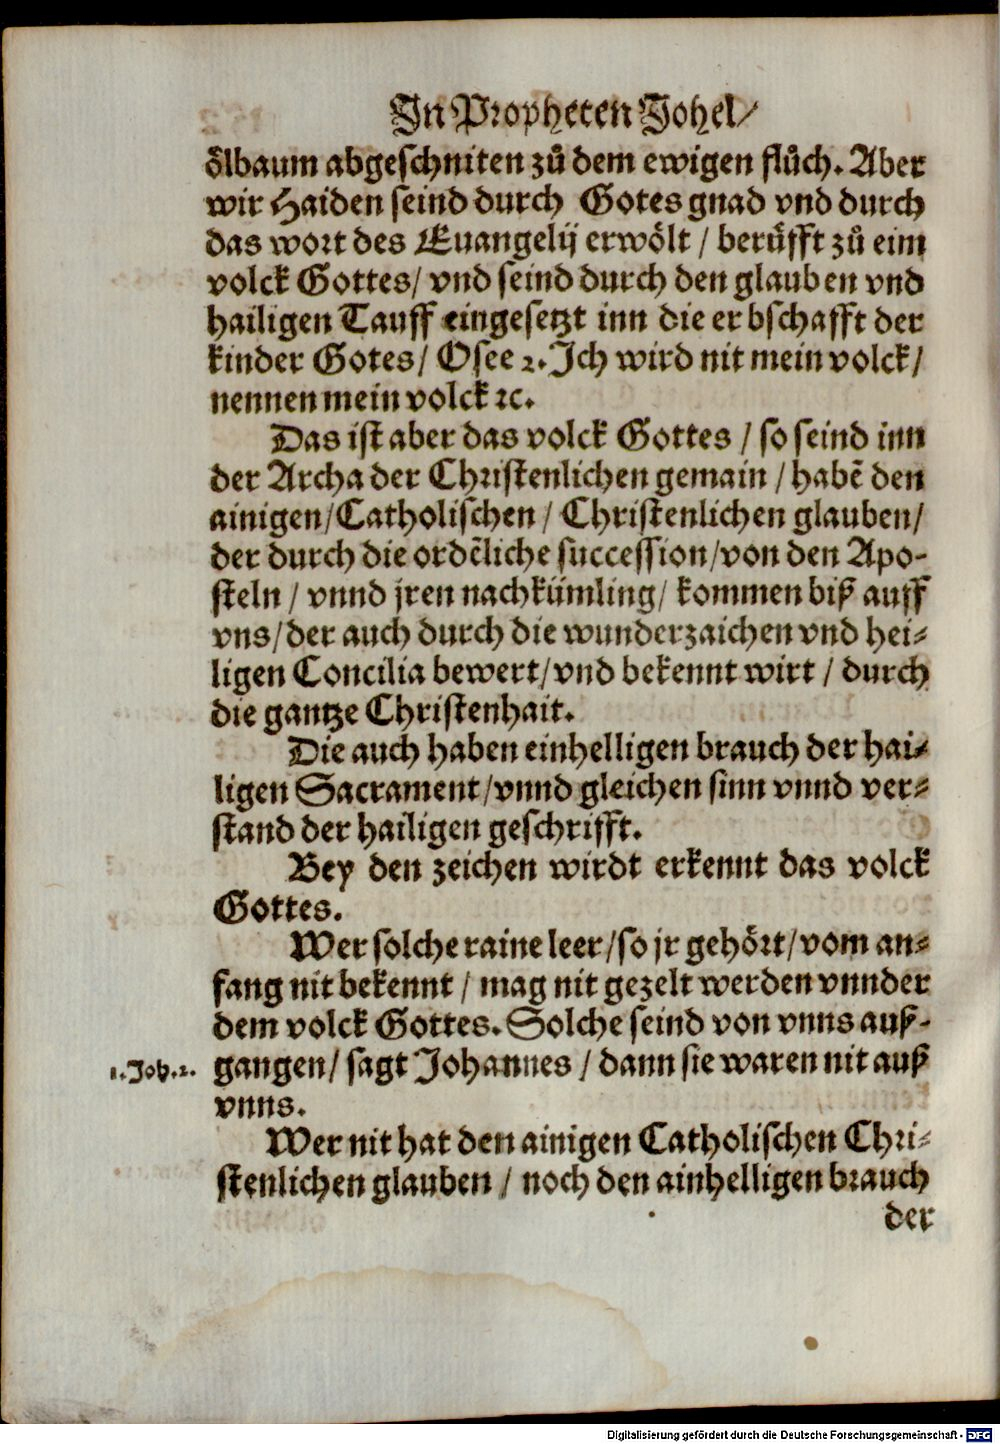 In Propheten Johel/
ölbaum abgeschniten zů dem ewigen flůch. Aber
wir Haiden seind durch Gotes gnad vnd durch
das wort des Euangelij erwölt / berůfft zů eim
volck Gottes/ vnd seind durch den glauben vnd
hailigen Tauff eingesetzt inn die erbschafft der
kinder Gotes/ Osee 2. Ich wird nit mein volck/
nennen mein volck ꝛc.
Das ist aber das volck Gottes / so seind inn
der Archa der Christenlichen gemain / habē den
ainigen/Catholischen / Christenlichen glauben/
der durch die ordēliche succession/von den Apo-
steln / vnnd jren nachkümling/ kommen biß auff
vns/der auch durch die wunderzaichen vnd hei-
ligen Concilia bewert/vnd bekennt wirt / durch
die gantze Christenhait.
Die auch haben einhelligen brauch der hai-
ligen Sacrament/vnnd gleichen sinn vnnd ver-
stand der hailigen geschrifft.
Bey den zeichen wirdt erkennt das volck
Gottes.
Wer solche raine leer/so jr gehört/vom an-
fang nit bekennt / mag nit gezelt werden vnnder
dem volck Gottes. Solche seind von vnns auß-
1.Joh.2. gangen/ sagt Johannes / dann sie waren nit auß
vnns.
Wer nit hat den ainigen Catholischen Chri-
stenlichen glauben / noch den ainhelligen brauch
der
Digitalisierung gefördert durch die Deutsche Forschungsgemeinschaft - DFG